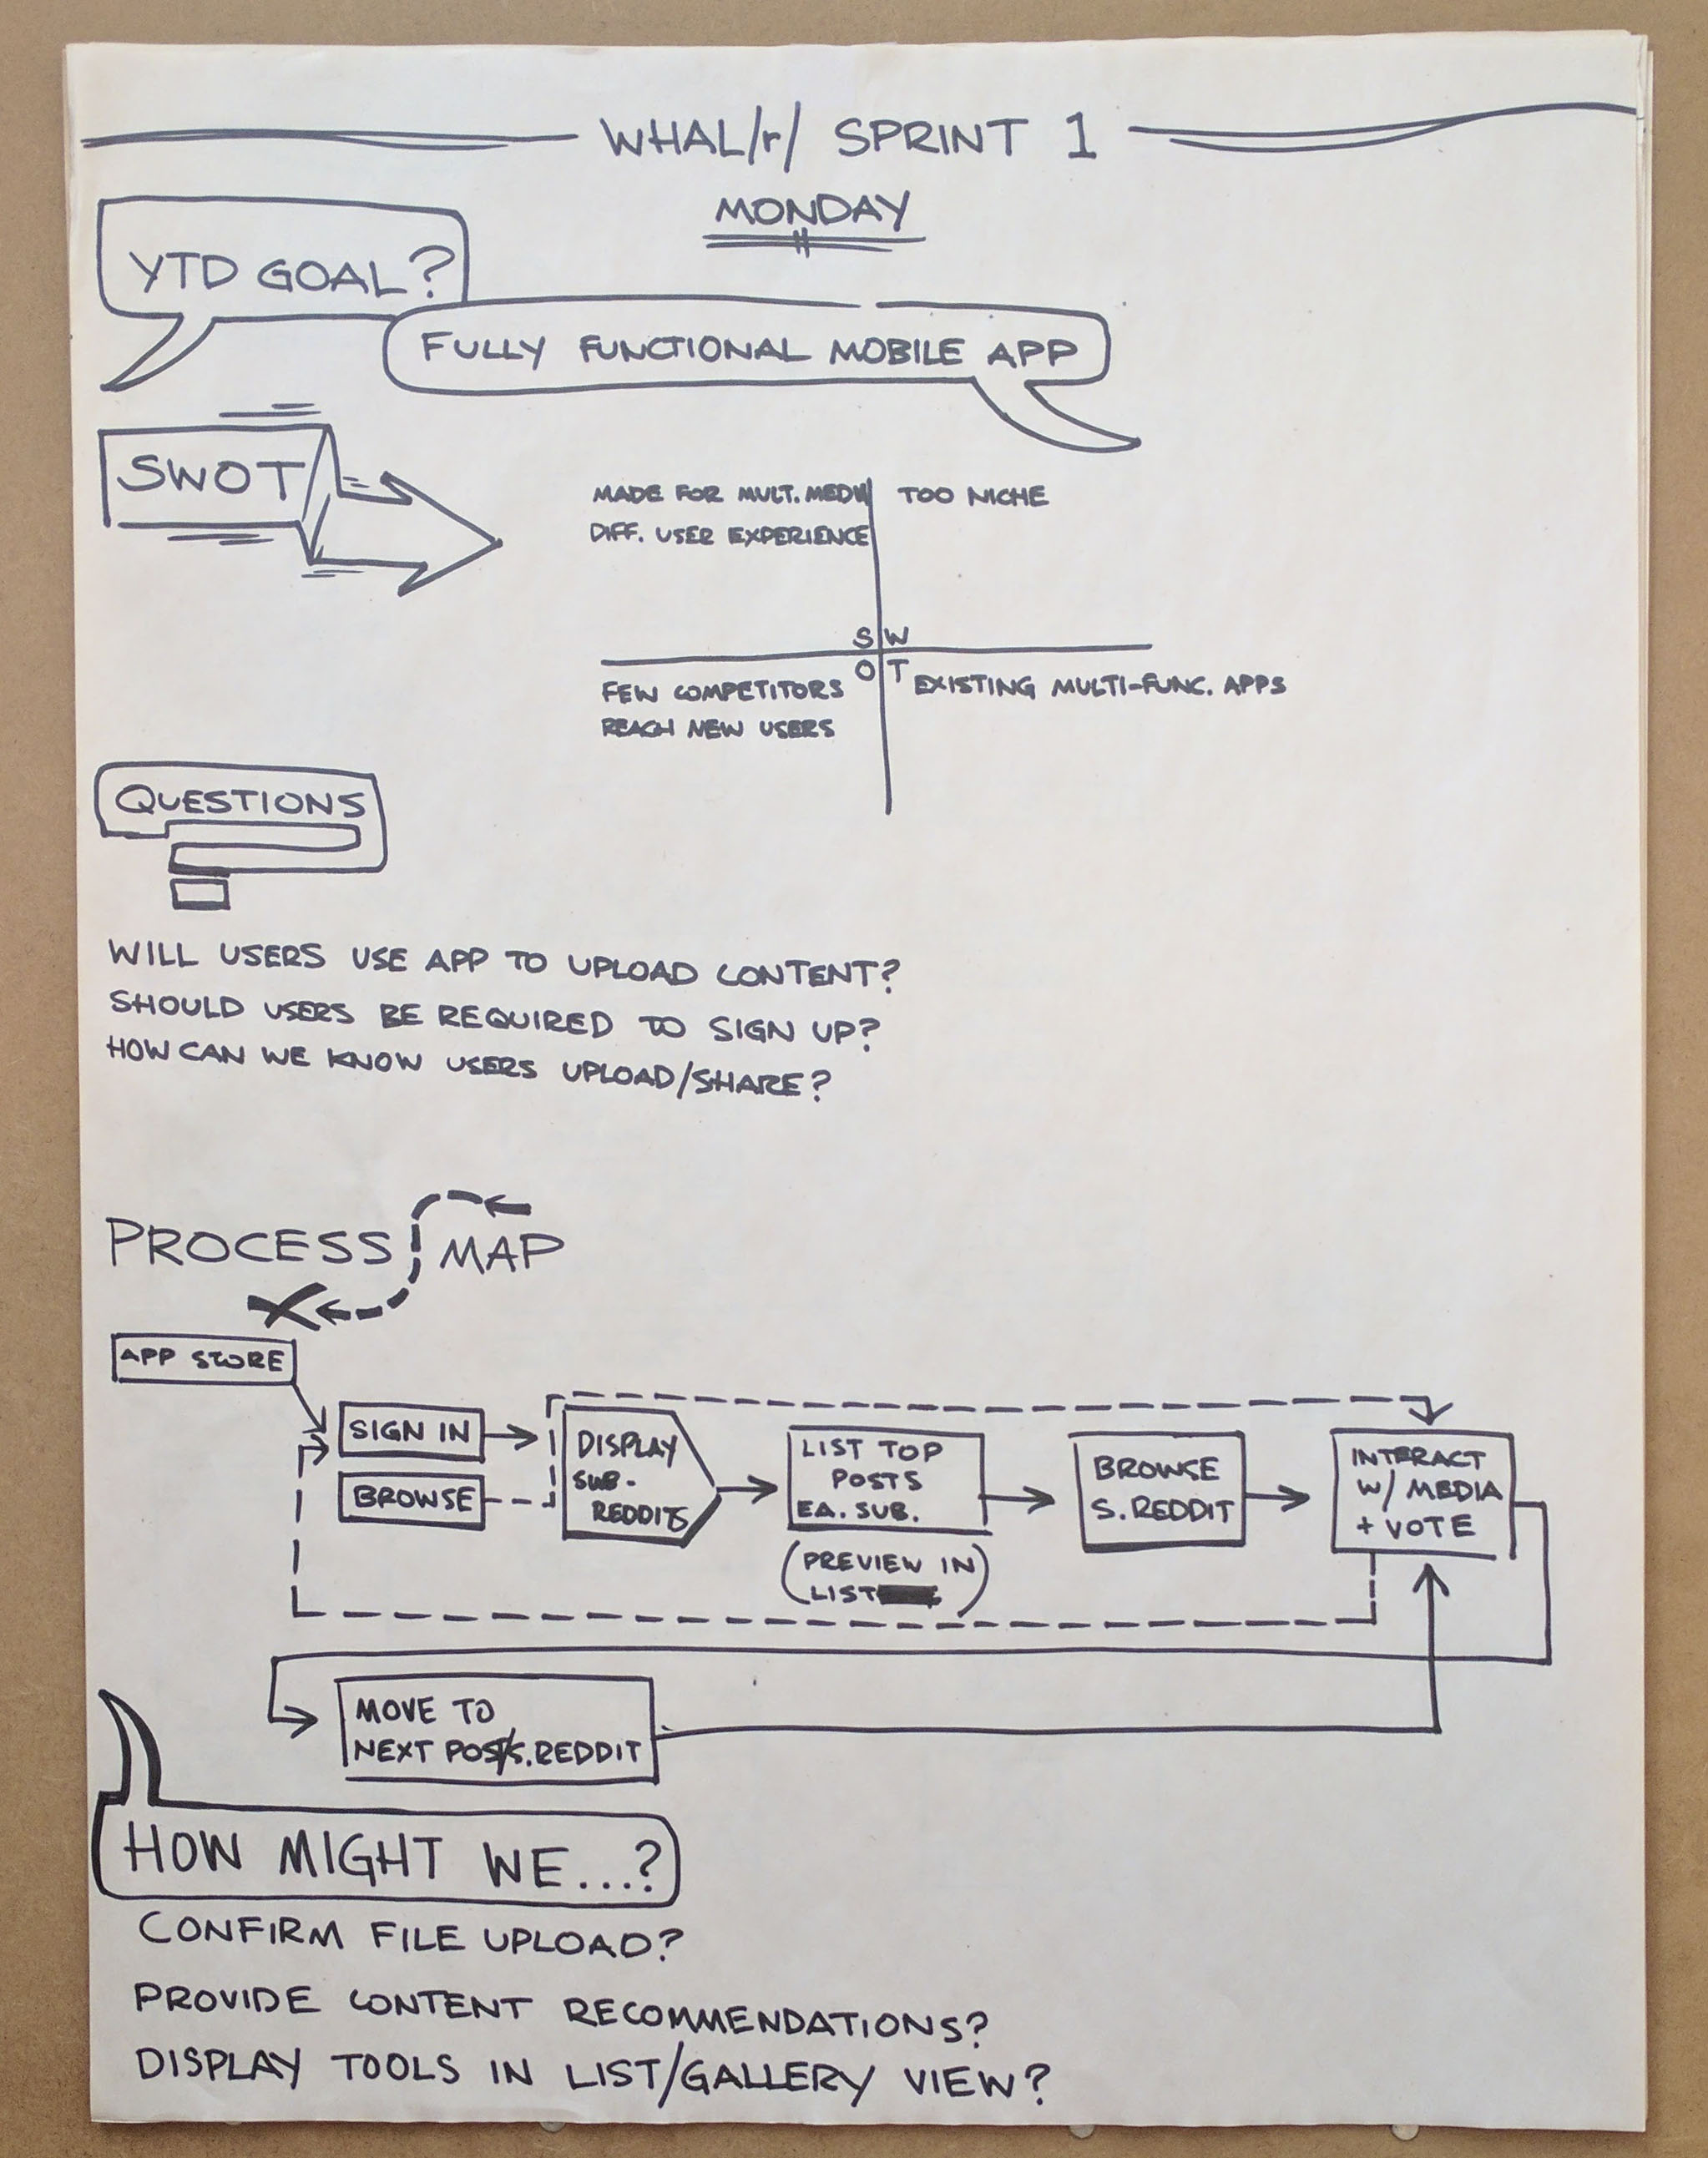 WHAL/r/ SPRINT 1
MONDAY
YTD GOAL?
FULLY FUNCTIONAL MOBILE APP
SWOT
MADE FOR MULT. MEDIA
DIFF. USER EXPERIENCE
TOO NICHE
S W
O T
FEW COMPETITORS
REACH NEW USERS
EXISTING MULTI-FUNC. APPS
QUESTIONS
WILL USERS USE APP TO UPLOAD CONTENT?
SHOULD USERS BE REQUIRED TO SIGN UP?
HOW CAN WE KNOW USERS UPLOAD/SHARE?
PROCESS MAP
APP STORE
SIGN IN
BROWSE
DISPLAY
SUB-
REDDITS
LIST TOP
POSTS
EA. SUB.
(PREVIEW IN
LIST)
BROWSE
S. REDDIT
INTERACT
W/ MEDIA
+ VOTE
MOVE TO
NEXT POST/S. REDDIT
HOW MIGHT WE...?
CONFIRM FILE UPLOAD?
PROVIDE CONTENT RECOMMENDATIONS?
DISPLAY TOOLS IN LIST/GALLERY VIEW?